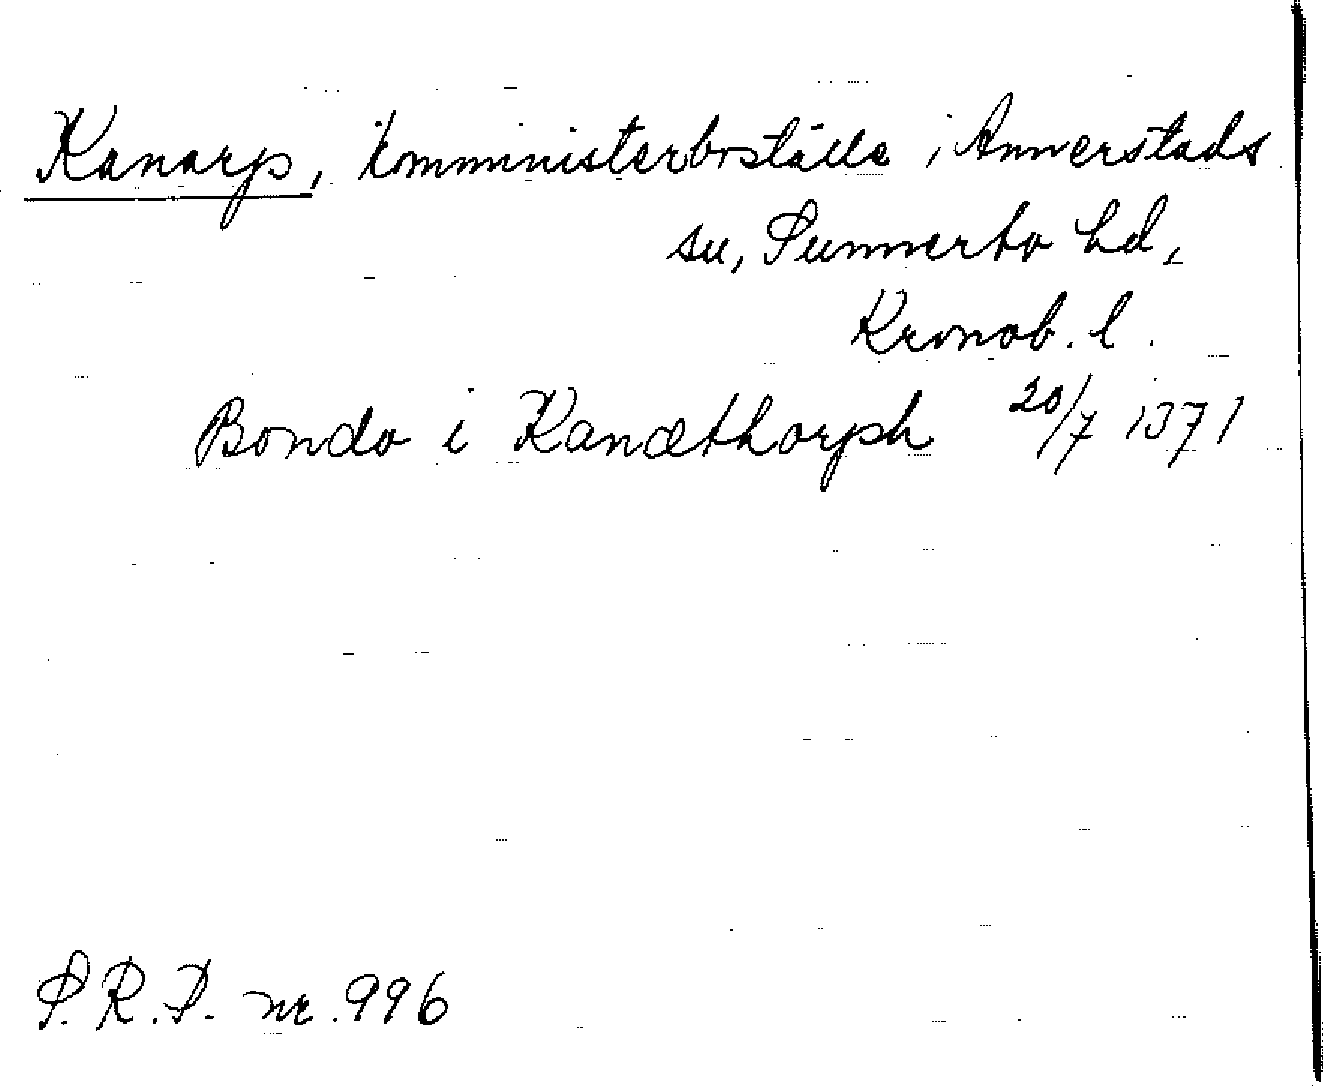 Kanarp, komministerboställe i Annerstads
sn, Sunnerbo hd,
Kronob. l.
Bondo i Kanæthorph 20/7 1371
S.R.P. nr. 996